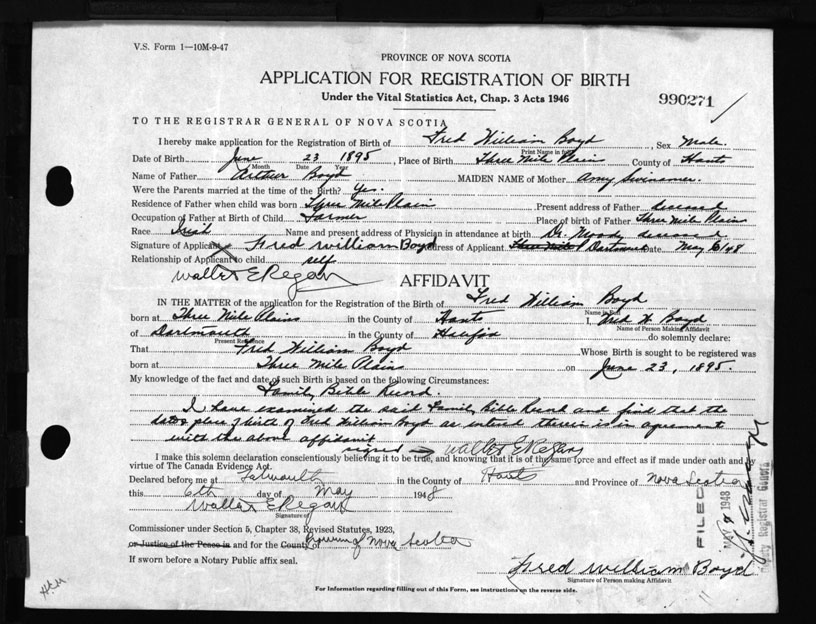 V.S. Form 1—10M-9-47
PROVINCE OF NOVA SCOTIA
APPLICATION FOR REGISTRATION OF BIRTH
Under the Vital Statistics Act, Chap. 3 Acts 1946
990271
TO THE REGISTRAR GENERAL OF NOVA SCOTIA
I hereby make application for the Registration of Birth of Fred William Boyd, Sex Male.
Print Name in full
Date of Birth June 23 1895, Place of Birth Three Mile Plain County of Hants
Month Date Year
Name of Father Arthur Boyd MAIDEN NAME of Mother Amy Swinamer.
Were the Parents married at the time of the Birth? Yes.
Residence of Father when child was born Three Mile Plain Present address of Father deceased
Occupation of Father at Birth of Child Farmer Place of birth of Father Three Mile Plains
Race Irish Name and present address of Physician in attendance at birth Dr. Moody deceased
Signature of Applicant Fred William Boyd Address of Applicant Dartmouth Date May 6/48
Relationship of Applicant to child self
Walter E Regan
AFFIDAVIT
IN THE MATTER of the application for the Registration of the Birth of Fred William Boyd
Name in Full
born at Three Mile Plains in the County of Hants I, Fred W Boyd
Name of Person Making Affidavit
of Dartmouth in the County of Halifax do solemnly declare:
Present Residence
That Fred William Boyd Whose Birth is sought to be registered was
born at Three Mile Plains on June 23, 1895.
My knowledge of the fact and date of such Birth is based on the following Circumstances:
Family Bible Record.
I have examined the said Family Bible Record and find that the
date & place of birth of Fred William Boyd as entered therein is in agreement
with the above affidavit
signed Walter E Regan
I make this solemn declaration conscientiously believing it to be true, and knowing that it is of the same force and effect as if made under oath and by
virtue of The Canada Evidence Act.
Declared before me at Falmouth in the County of Hants and Province of Nova Scotia
this 6th day of May 1948
Walter E Regan
Signature of
Commissioner under Section 5, Chapter 38, Revised Statutes, 1923,
or Justice of the Peace in and for the County of Province of Nova Scotia
If sworn before a Notary Public affix seal.
Fred William Boyd
Signature of Person making Affidavit
For Information regarding filling out of this Form, see instructions on the reverse side.
FILED
MAY 1948
Deputy Registrar General